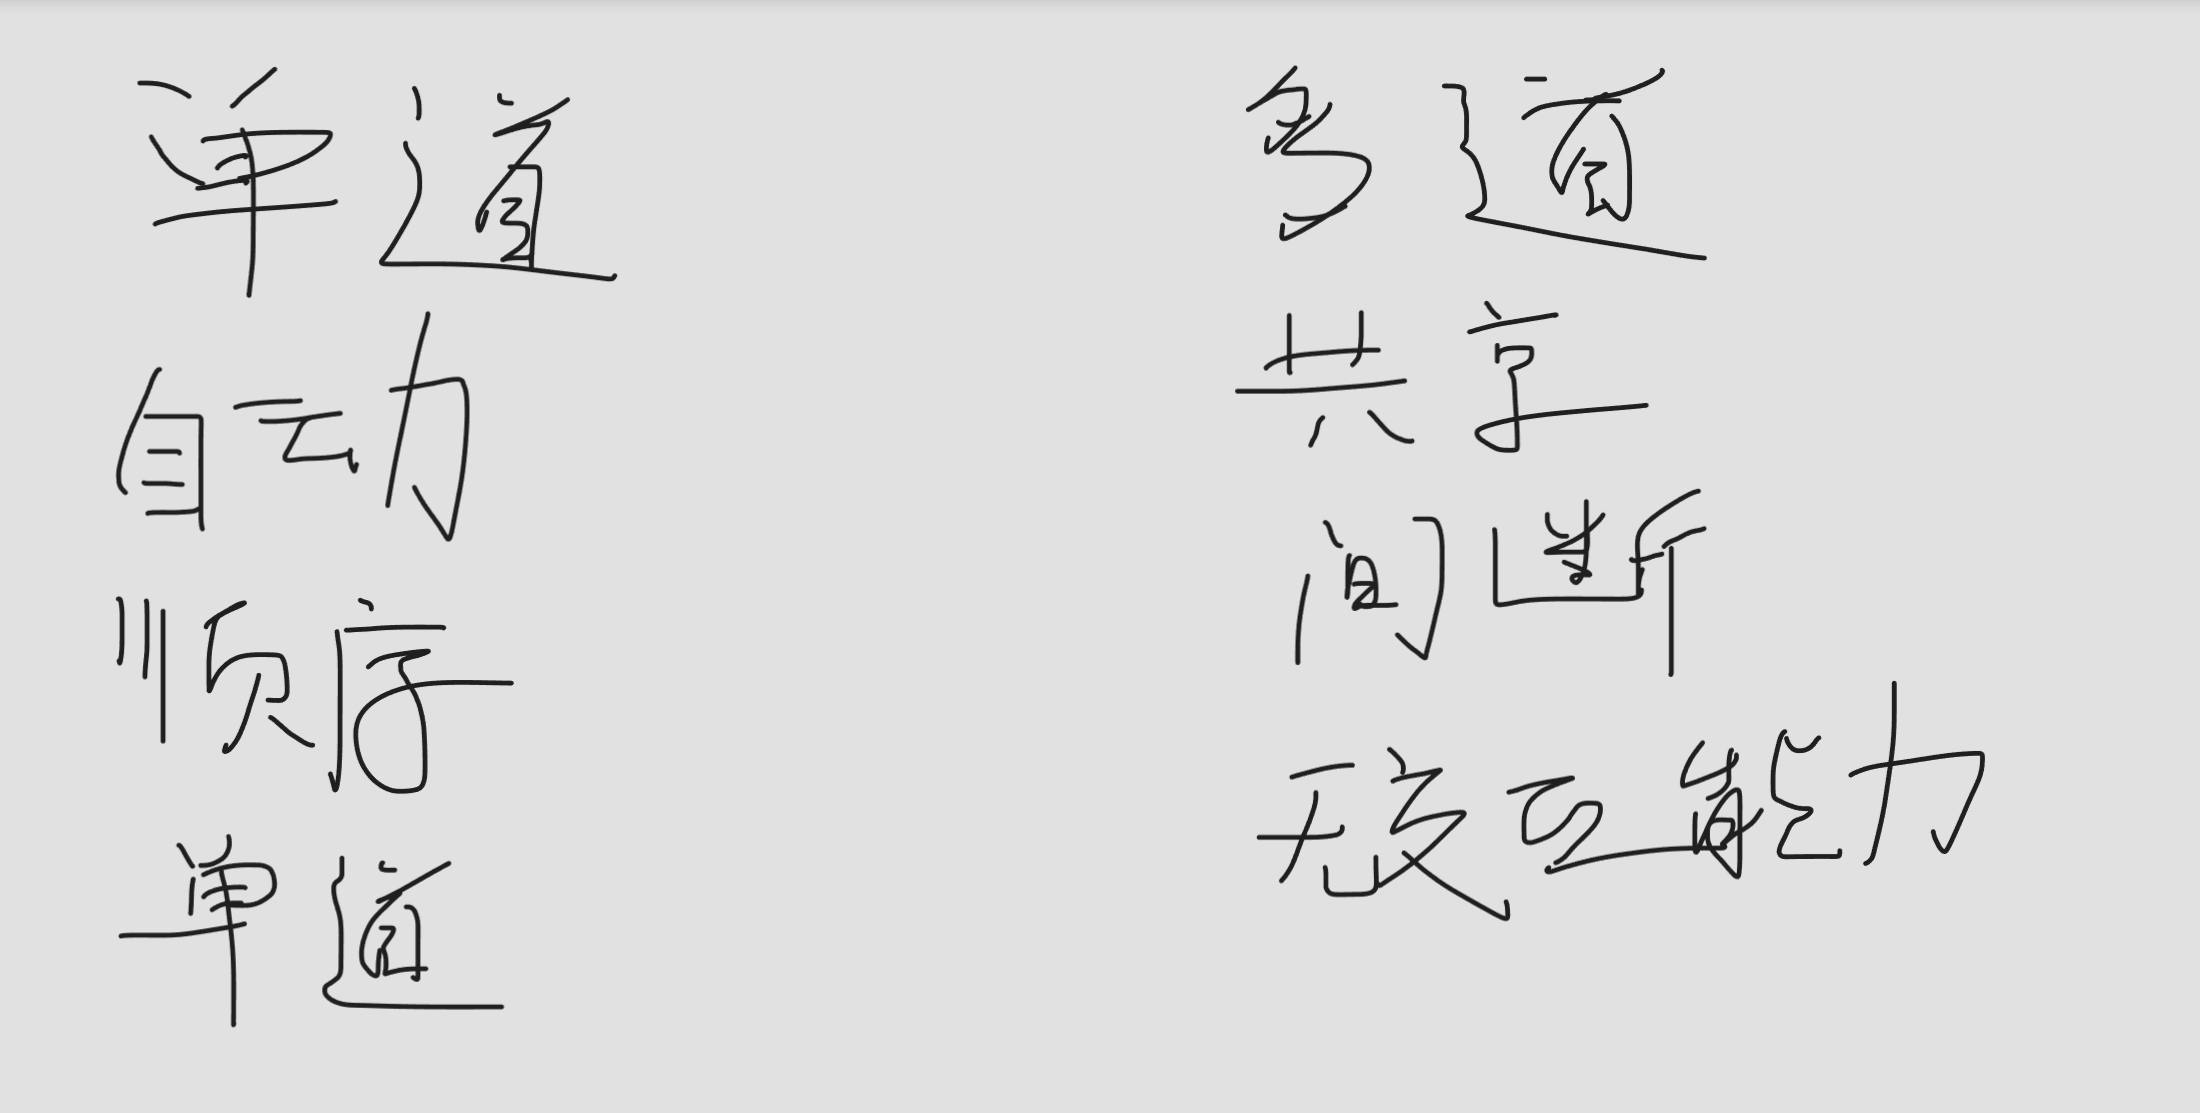 单道
多道
自动
共享
顺序
间断
单道
无交互能力